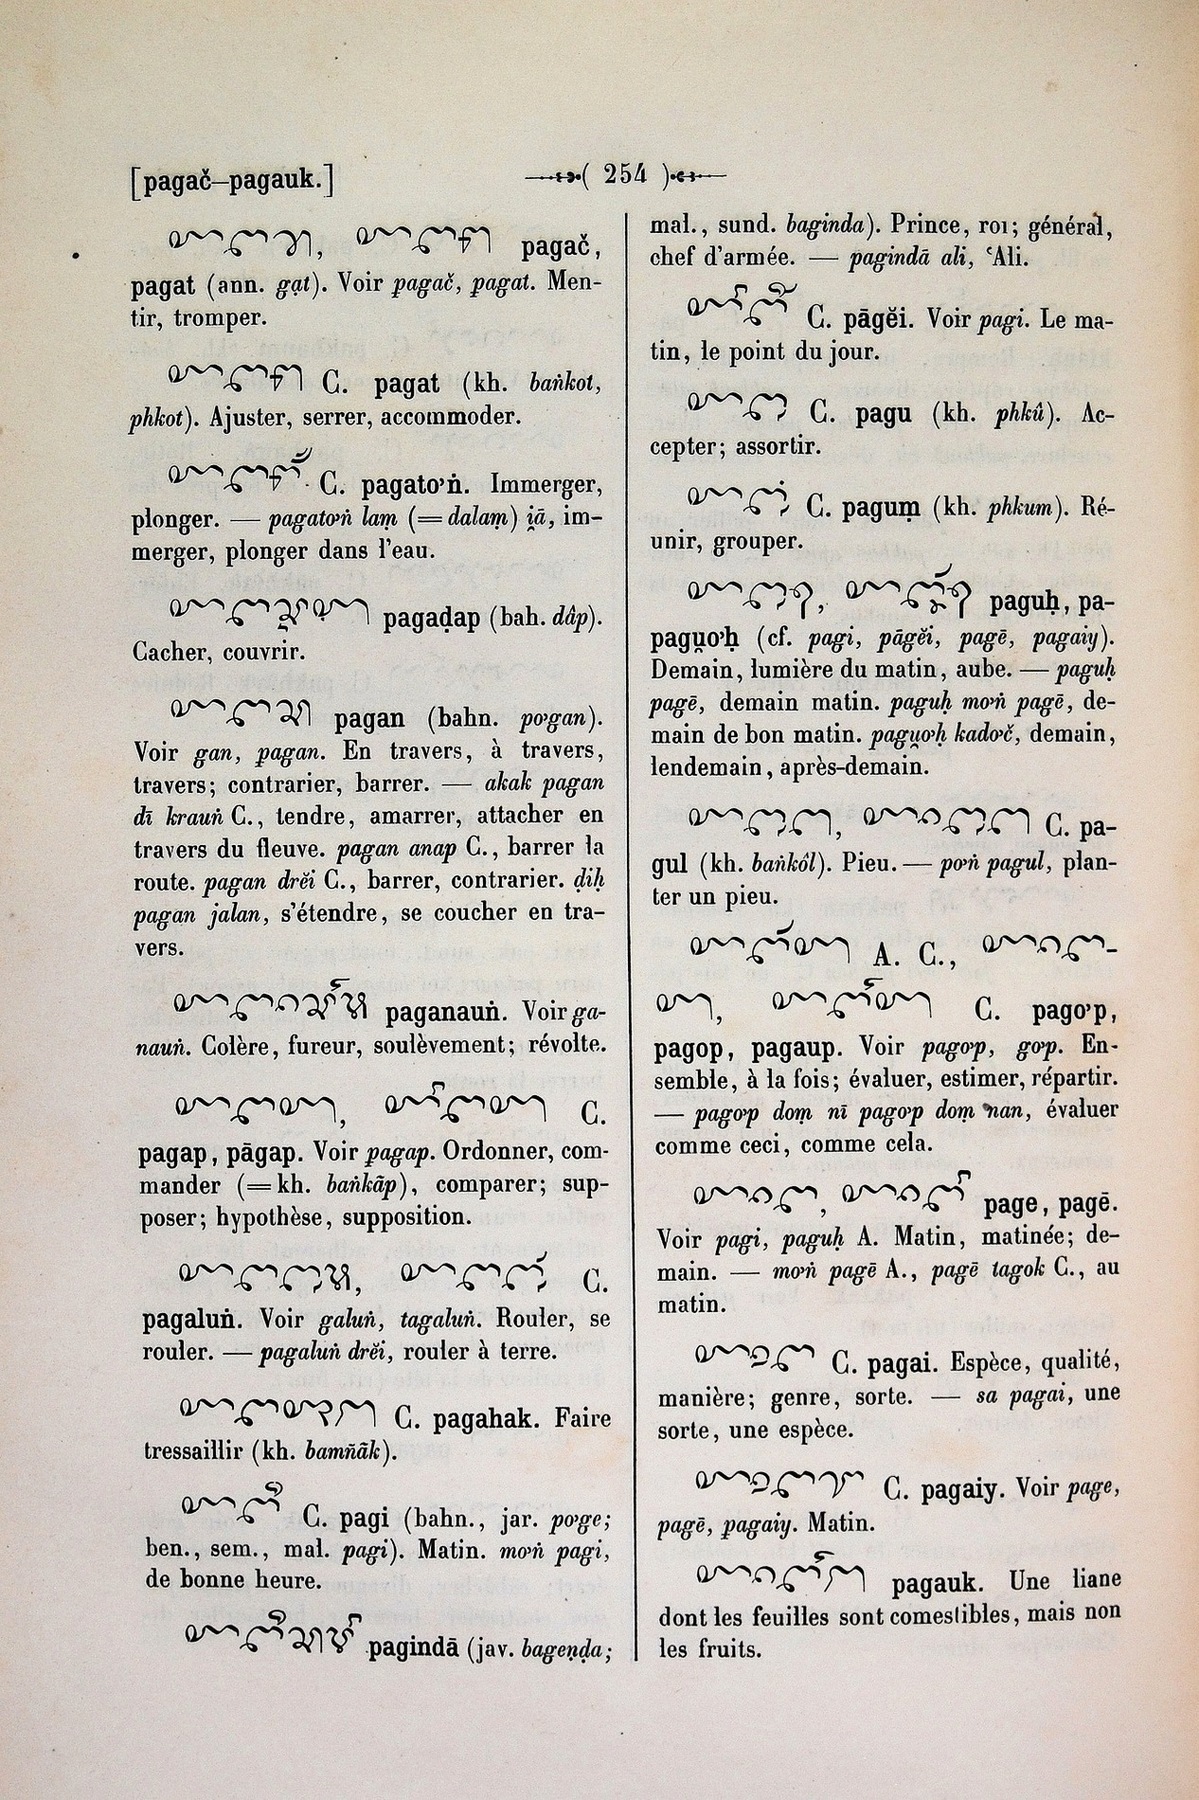 [pagač–pagauk.]
( 254 )
pagač,
pagat (ann. gąt). Voir p̣agač, p̣agat. Men-
tir, tromper.
C. pagat (kh. baṅkot,
phkot). Ajuster, serrer, accommoder.
C. pagato’ṅ. Immerger,
plonger. — pagato’ṅ laṃ (= dalaṃ) i̯ā, im-
merger, plonger dans l’eau.
pagaḍap (bah. dâp).
Cacher, couvrir.
pagan (bahn. po’gan).
Voir gan, p̣agan. En travers, à travers,
travers; contrarier, barrer. — akak pagan
dī krauṅ C., tendre, amarrer, attacher en
travers du fleuve. pagan anap C., barrer la
route. pagan drĕi C., barrer, contrarier. ḍiḥ
pagan jalan, s’étendre, se coucher en tra-
vers.
paganauṅ. Voir ga-
nauṅ. Colère, fureur, soulèvement; révolte.
C.
pagap, pāgap. Voir p̣agap. Ordonner, com-
mander (= kh. baṅkāp), comparer; sup-
poser; hypothèse, supposition.
C.
pagaluṅ. Voir galuṅ, tagaluṅ. Rouler, se
rouler. — pagaluṅ drĕi, rouler à terre.
C. pagahak. Faire
tressaillir (kh. bamñāk).
C. pagi (bahn., jar. po’ge;
ben., sem., mal. pagi). Matin. mo’ṅ pagi,
de bonne heure.
pagindā (jav. bageṇḍa;
mal., sund. baginda). Prince, roi; général,
chef d’armée. — pagindā ali, ʿAli.
C. pāgĕi. Voir pagi. Le ma-
tin, le point du jour.
C. pagu (kh. phkû). Ac-
cepter; assortir.
C. paguṃ (kh. phkum). Ré-
unir, grouper.
paguḥ, pa-
pagu̯o’ḥ (cf. pagi, pāgĕi, pagē, pagaiy).
Demain, lumière du matin, aube. — paguḥ
pagē, demain matin. paguḥ mo’ṅ pagē, de-
main de bon matin. pagu̯o’ḥ kado’č, demain,
lendemain, après-demain.
C. pa-
gul (kh. baṅkôl). Pieu. — po’ṅ pagul, plan-
ter un pieu.
A. C.,
C. pago’p,
pagop, pagaup. Voir p̣ago’p, go’p. En-
semble, à la fois; évaluer, estimer, répartir.
— pago’p doṃ nī pago’p doṃ nan, évaluer
comme ceci, comme cela.
page, pagē.
Voir pagi, paguḥ A. Matin, matinée; de-
main. — mo’ṅ pagē A., pagē tagok C., au
matin.
C. pagai. Espèce, qualité,
manière; genre, sorte. — sa pagai, une
sorte, une espèce.
C. pagaiy. Voir page,
pagē, p̣agaiy. Matin.
pagauk. Une liane
dont les feuilles sont comestibles, mais non
les fruits.